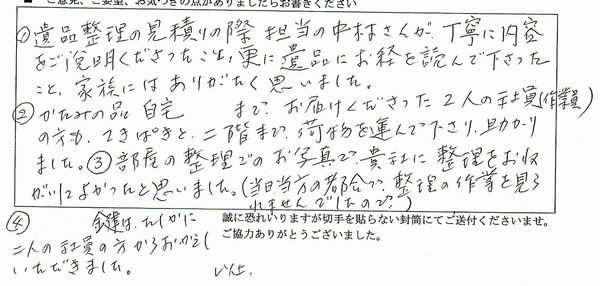 ■ ご意見、ご要望、お気づきの点がありましたらお書きください
①遺品整理の見積りの際 担当の中村さんが、丁寧に内容
をご説明くださったこと、更に遺品にお経を読んで下さった
こと、家族にはありがたく思いました。
②かたみの品 自宅 まで、お届けくださった2人の社員(作業員)
の方も、てきぱきと、二階まで、荷物を運んで下さり、助かり
ました。③部屋の整理でのお写真で、貴社に整理をお願
がいしてよかったと思いました。(当日当方の都合で、整理の作業を見ら
れませんでしたので?)
④ 鍵は、たしかに
二人の社員の方からおかえし
いただきました。
以上.
誠に恐れいりますが切手を貼らない封筒にてご送付くださいませ。
ご協力ありがとうございました。